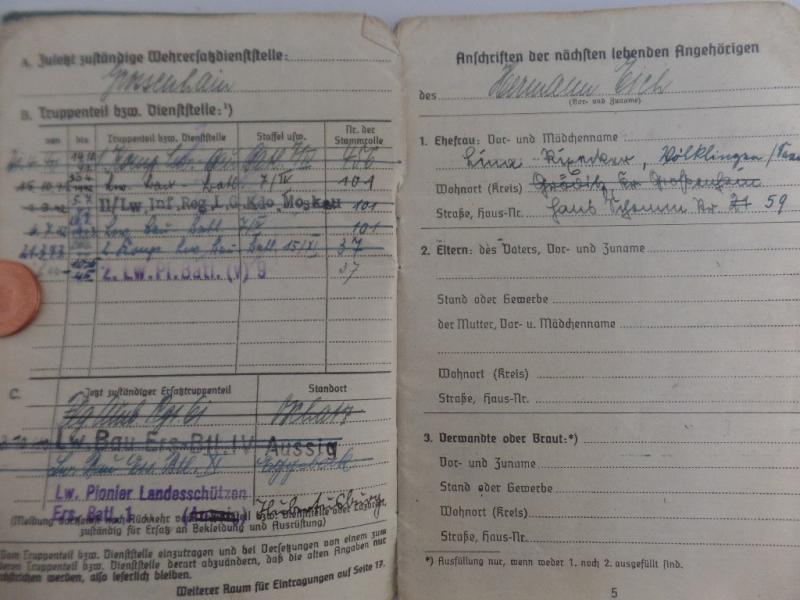 A. Zuletzt zuständige Wehrersatzdienststelle:
Grossenhain
B. Truppenteil bzw. Dienststelle:¹)
von bis Truppenteil bzw. Dienststelle Staffel usw. Nr. der Stammrolle
7/IV 456
7/IV 101
II/Lw. Inf. Reg. L.G. Kdo. Moskau 101
7/IV 101
21.3.43 2. Komp. Lw. Bau Batl. 15/XI 37
2. Lw. Pi. Batl. (v) 9 37
C. Jetzt zuständiger Ersatztruppenteil Standort
Lw. Bau-Ers.-Btl. IV Aussig
Lw. Bau Ers. Btl. XI
Lw. Pionier Landesschützen
Ers. Batl. 1 (Aussig)
zuständig für Ersatz an Bekleidung und Ausrüstung)
Vom Truppenteil bzw. Dienststelle einzutragen und bei Versetzungen von einem zum
deren Truppenteil bzw. Dienststelle derart abzuändern, daß die alten Angaben nur
chstrichen werden, also leserlich bleiben.
Weiterer Raum für Eintragungen auf Seite 17.
Anschriften der nächsten lebenden Angehörigen
des Hermann Eich
(Vor- und Zuname)
1. Ehefrau: Vor- und Mädchenname
Lina Völklingen
Wohnort (Kreis) Gröditz, Kr. Großenhain
Straße, Haus-Nr. Hans Schemm Str. 21 59
2. Eltern: des Vaters, Vor- und Zuname
Stand oder Gewerbe
der Mutter, Vor- u. Mädchenname
Wohnort (Kreis)
Straße, Haus-Nr.
3. Verwandte oder Braut:*)
Vor- und Zuname
Stand oder Gewerbe
Wohnort (Kreis)
Straße, Haus-Nr.
*) Ausfüllung nur, wenn weder 1. noch 2. ausgefüllt sind.
5